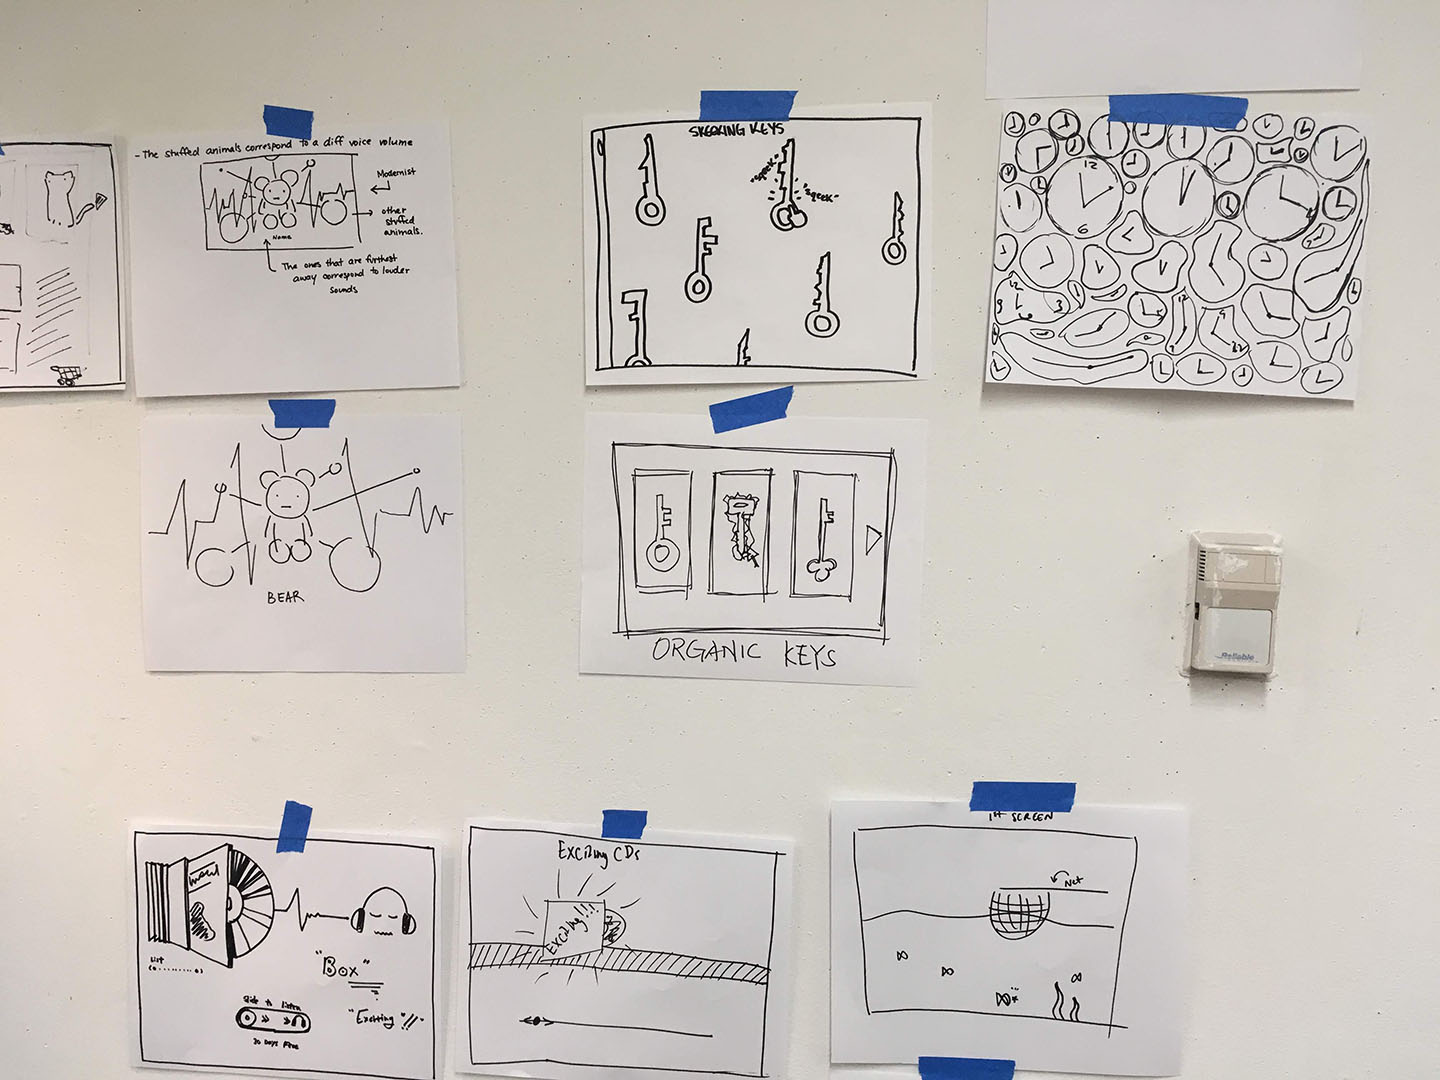 - The stuffed animals correspond to a diff voice volume
Modernist
other
stuffed
animals.
Name
The ones that are furthest
away correspond to louder
sounds
SKEEKING KEYS
"SQEEK"
"SQEEK"
12
6
12
9
3
6
12
BEAR
ORGANIC KEYS
Reliable
List
"Box"
Slide to listen
"Exciting"
30 Days Free
Exciting CDs
Exciting!!!
1st SCREEN
Net